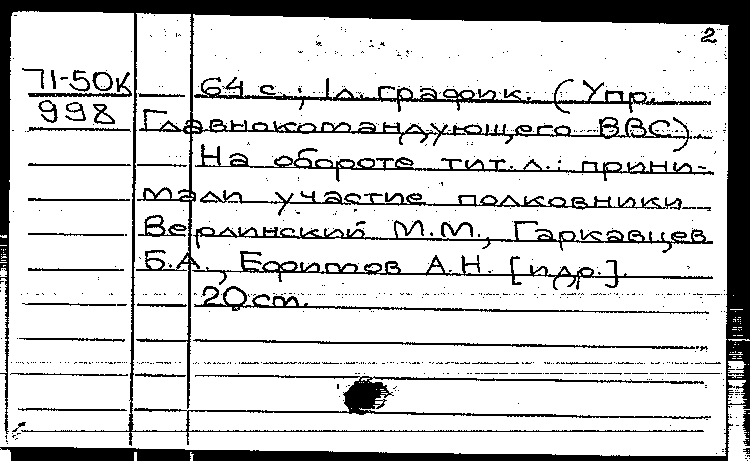 2
71-50К 64 с.; 1л. график. (Упр.
998 Главнокомандующего ВВС).
На обороте тит. л.: прини-
мали участие полковники
Верлинский М.М., Гаркавцев
Б.А., Ефимов А.Н. [и др.].
20 см.